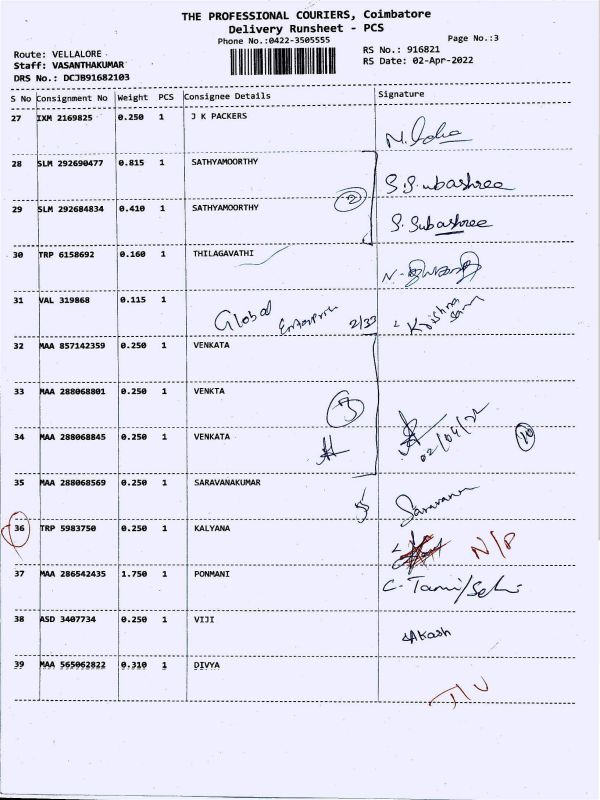 THE PROFESSIONAL COURIERS, Coimbatore
Delivery Runsheet - PCS
Phone No.:0422-3505555
Page No.:3
Route: VELLALORE
RS No.: 916821
Staff: VASANTHAKUMAR
RS Date: 02-Apr-2022
DRS No.: DCJB91682103
S No Consignment No Weight PCS Consignee Details Signature
27 IXM 2169825 0.250 1 J K PACKERS
28 SLM 292690477 0.815 1 SATHYAMOORTHY S.Subashree
2
29 SLM 292684834 0.410 1 SATHYAMOORTHY S.Subashree
30 TRP 6158692 0.160 1 THILAGAVATHI
31 VAL 319868 0.115 1 Global Enterprise Krishna
32 MAA 857142359 0.250 1 VENKATA
33 MAA 288068801 0.250 1 VENKTA
34 MAA 288068845 0.250 1 VENKATA 02/04/22 10
35 MAA 288068569 0.250 1 SARAVANAKUMAR Saravana
36 TRP 5983750 0.250 1 KALYANA N/P
37 MAA 286542435 1.750 1 PONMANI C-Tamilselvi
38 ASD 3407734 0.250 1 VIJI Akash
39 MAA 565062822 0.310 1 DIVYA